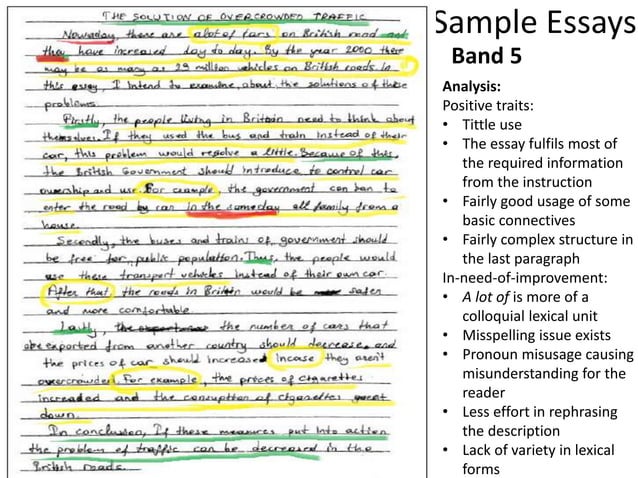 THE SOLUTION OF OVERCROWDED TRAFFIC
Nowaday, there are alot of cars on British road and
they have increased day to day. By the year 2000 there
may be as many as 29 million vehicles on British roads. In
this essay, I Intend to examine, about the solutions of these
problems.
Firstly, the people living in Britain need to think about
themselves. If they used the bus and train instead of their
car, this problem would resolve a little. Because of this,
the British Government should introduce to control car
ownership and use. For example, the government can ban to
enter the road by can in the sameday all family from a
house.
Secondly, the buses and trains of government should
be free for public population. Thus, the people would
use these transport vehicles instead of their own car.
After that, the roads in Britain would be safer
and more comfortable.
Lastly, the number of cars that
are exported from another country should decrease, and
the prices of car should increased incase they aren't
overcrowded. For example, the prices of cigarettes
increaded and the consuption of cigarettes went
down.
In conclusion, If these measures put into action
the problem of traffic can be decreased in the
British roads.
Sample Essays
Band 5
Analysis:
Positive traits:
• Tittle use
• The essay fulfils most of
the required information
from the instruction
• Fairly good usage of some
basic connectives
• Fairly complex structure in
the last paragraph
In-need-of-improvement:
• A lot of is more of a
colloquial lexical unit
• Misspelling issue exists
• Pronoun misusage causing
misunderstanding for the
reader
• Less effort in rephrasing
the description
• Lack of variety in lexical
forms